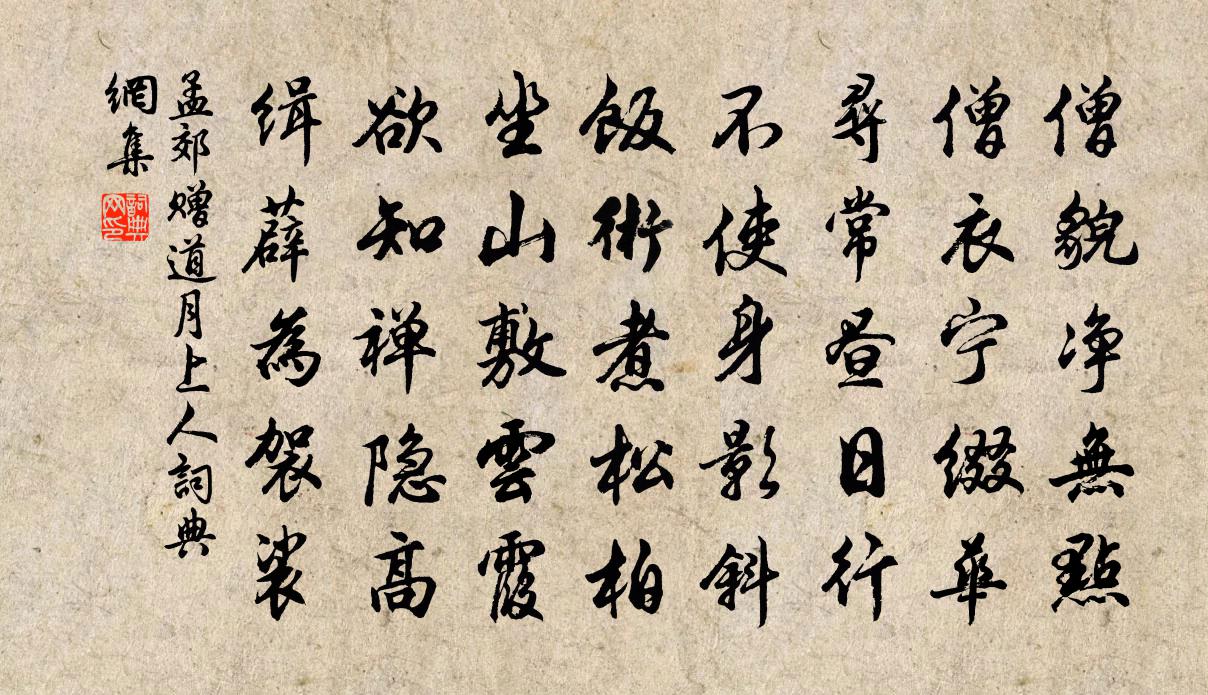 僧貌净無點
僧衣宁綴華
尋常晝日行
不使身影斜
飯術煮松柏
坐山敷雲霞
欲知禅隐高
緝薜為袈裟
孟郊赠道月上人詞典
網集
詞典
网印